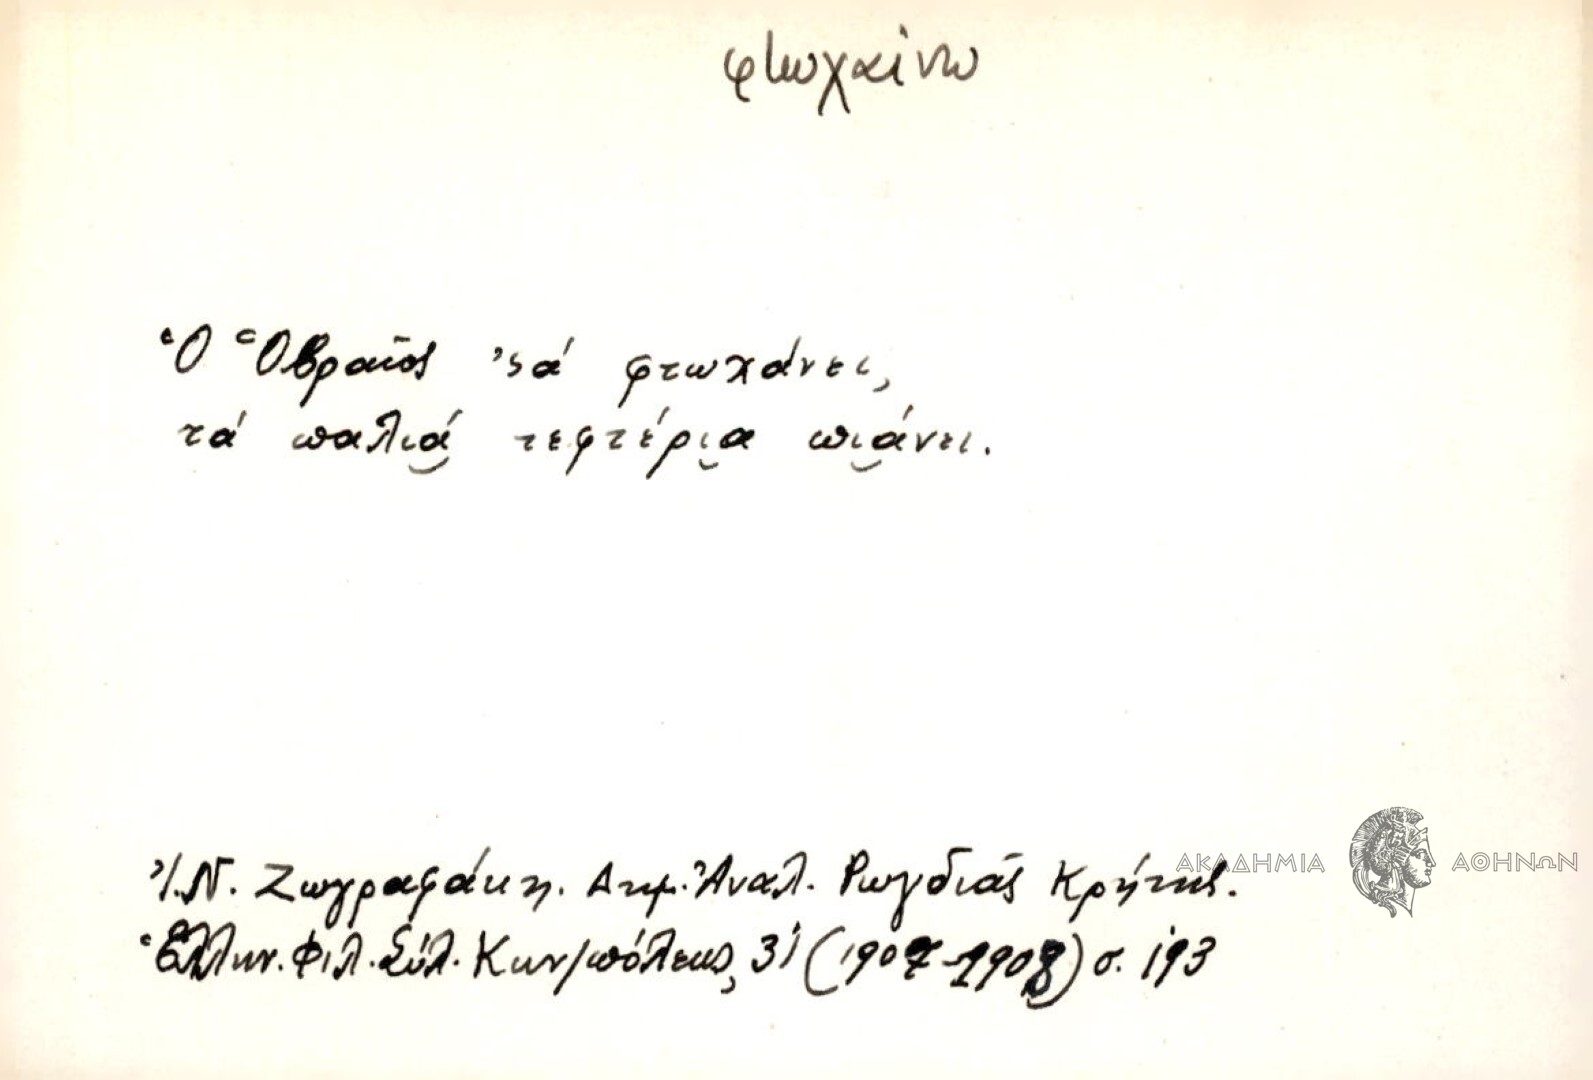 φτωχαίνω
Ὁ Ὁβραῖος 'ςά φτωχάνει,
τά παλιά τεφτέρια πιάνει.
Ἰ. Ν. Ζωγραφάκη. Δημ. Ἀναλ. Ρωγδιᾶς Κρήτης.
ΑΚΑΔΗΜΙΑ ΑΘΗΝΩΝ
Ἑλλην. Φιλ. Σύλ. Κων/πόλεως, 31 (1907-1908) σ. 193